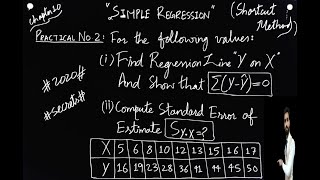 chapter 10
"SIMPLE REGRESSION" (Shortcut Method)
PRACTICAL No 2: For the following values:
(i) Find Regression Line "Y on X"
And Show that Σ(Y-Ŷ)=0
#2020#
#secrets#
(ii) Compute Standard Error of
Estimate Sy.x=?
X 5 6 8 10 12 13 15 16 17
Y 16 19 23 28 36 41 44 45 50